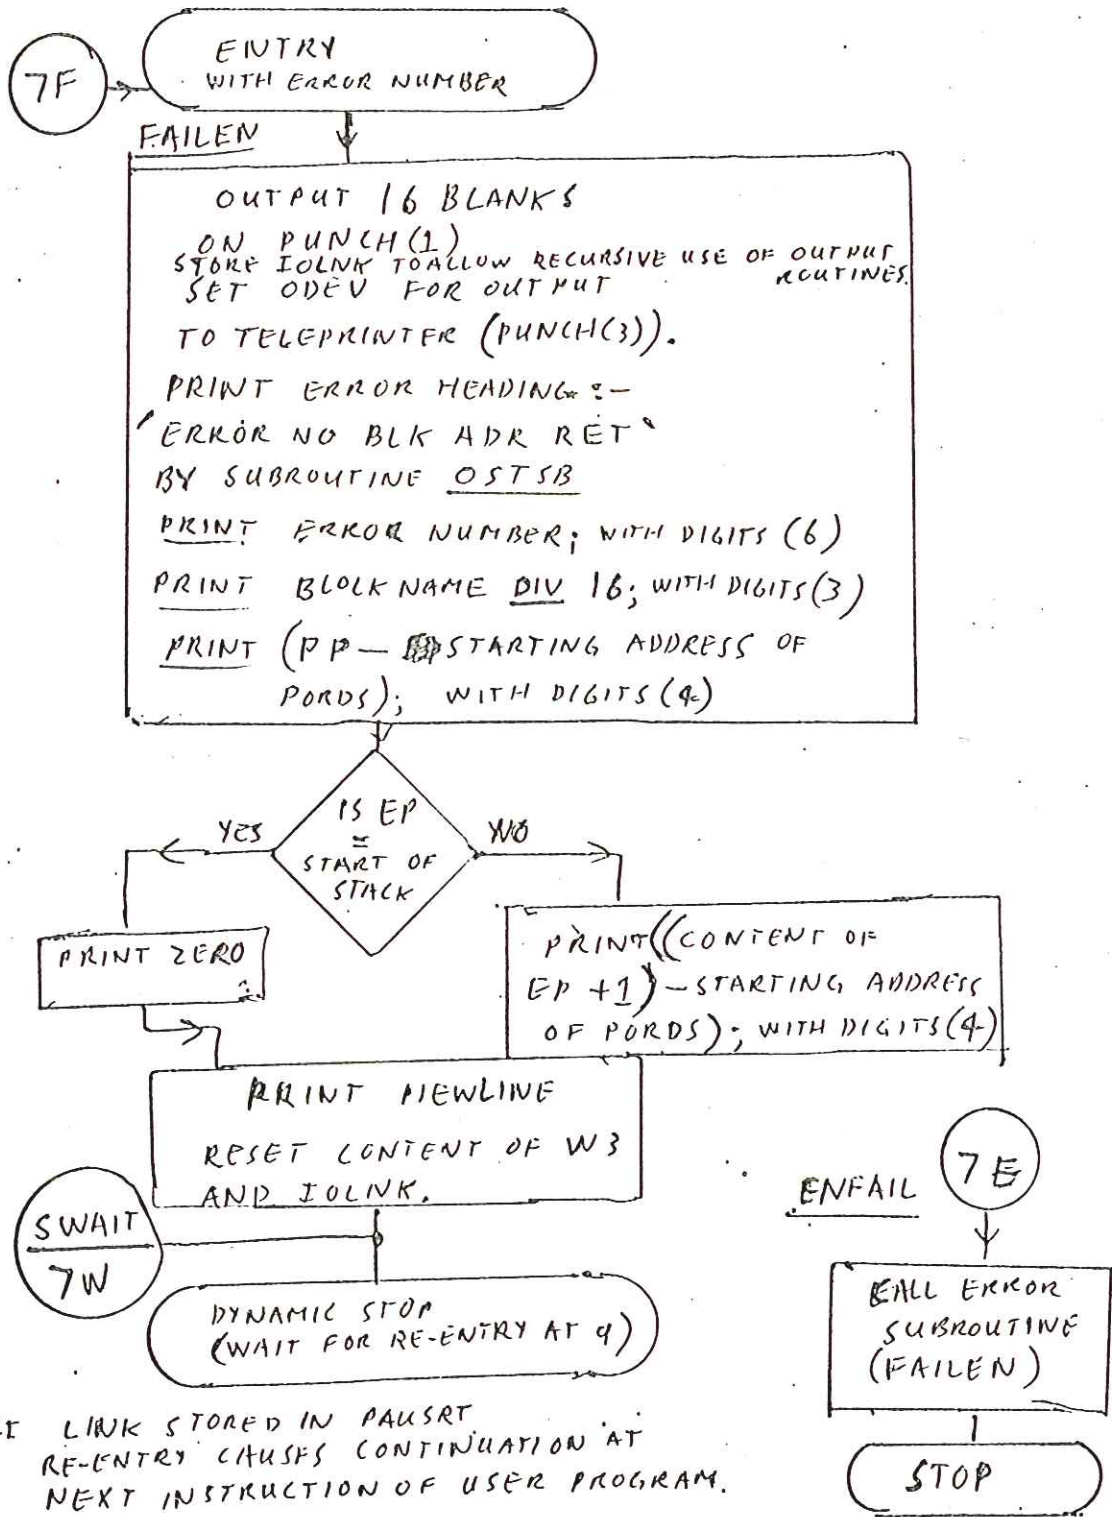 7F
ENTRY
WITH ERROR NUMBER
FAILEN
OUTPUT 16 BLANKS
ON PUNCH(1)
STORE IOLNK TO ALLOW RECURSIVE USE OF OUTPUT
ROUTINES.
SET ODEV FOR OUTPUT
TO TELEPRINTER (PUNCH(3)).
PRINT ERROR HEADING :-
'ERROR NO BLK ADR RET`
BY SUBROUTINE OSTSB
PRINT ERROR NUMBER; WITH DIGITS (6)
PRINT BLOCK NAME DIV 16; WITH DIGITS(3)
PRINT (PP - STARTING ADDRESS OF
PORDS); WITH DIGITS(4)
IS EP
=
START OF
STACK
YES
NO
PRINT ZERO
PRINT((CONTENT OF
EP +1) - STARTING ADDRESS
OF PORDS); WITH DIGITS(4)
PRINT NEWLINE
RESET CONTENT OF W3
AND IOLNK.
SWAIT
7W
DYNAMIC STOP
(WAIT FOR RE-ENTRY AT 9)
ENFAIL
7E
CALL ERROR
SUBROUTINE
(FAILEN)
STOP
LINK STORED IN PAUSRT
RE-ENTRY CAUSES CONTINUATION AT
NEXT INSTRUCTION OF USER PROGRAM.